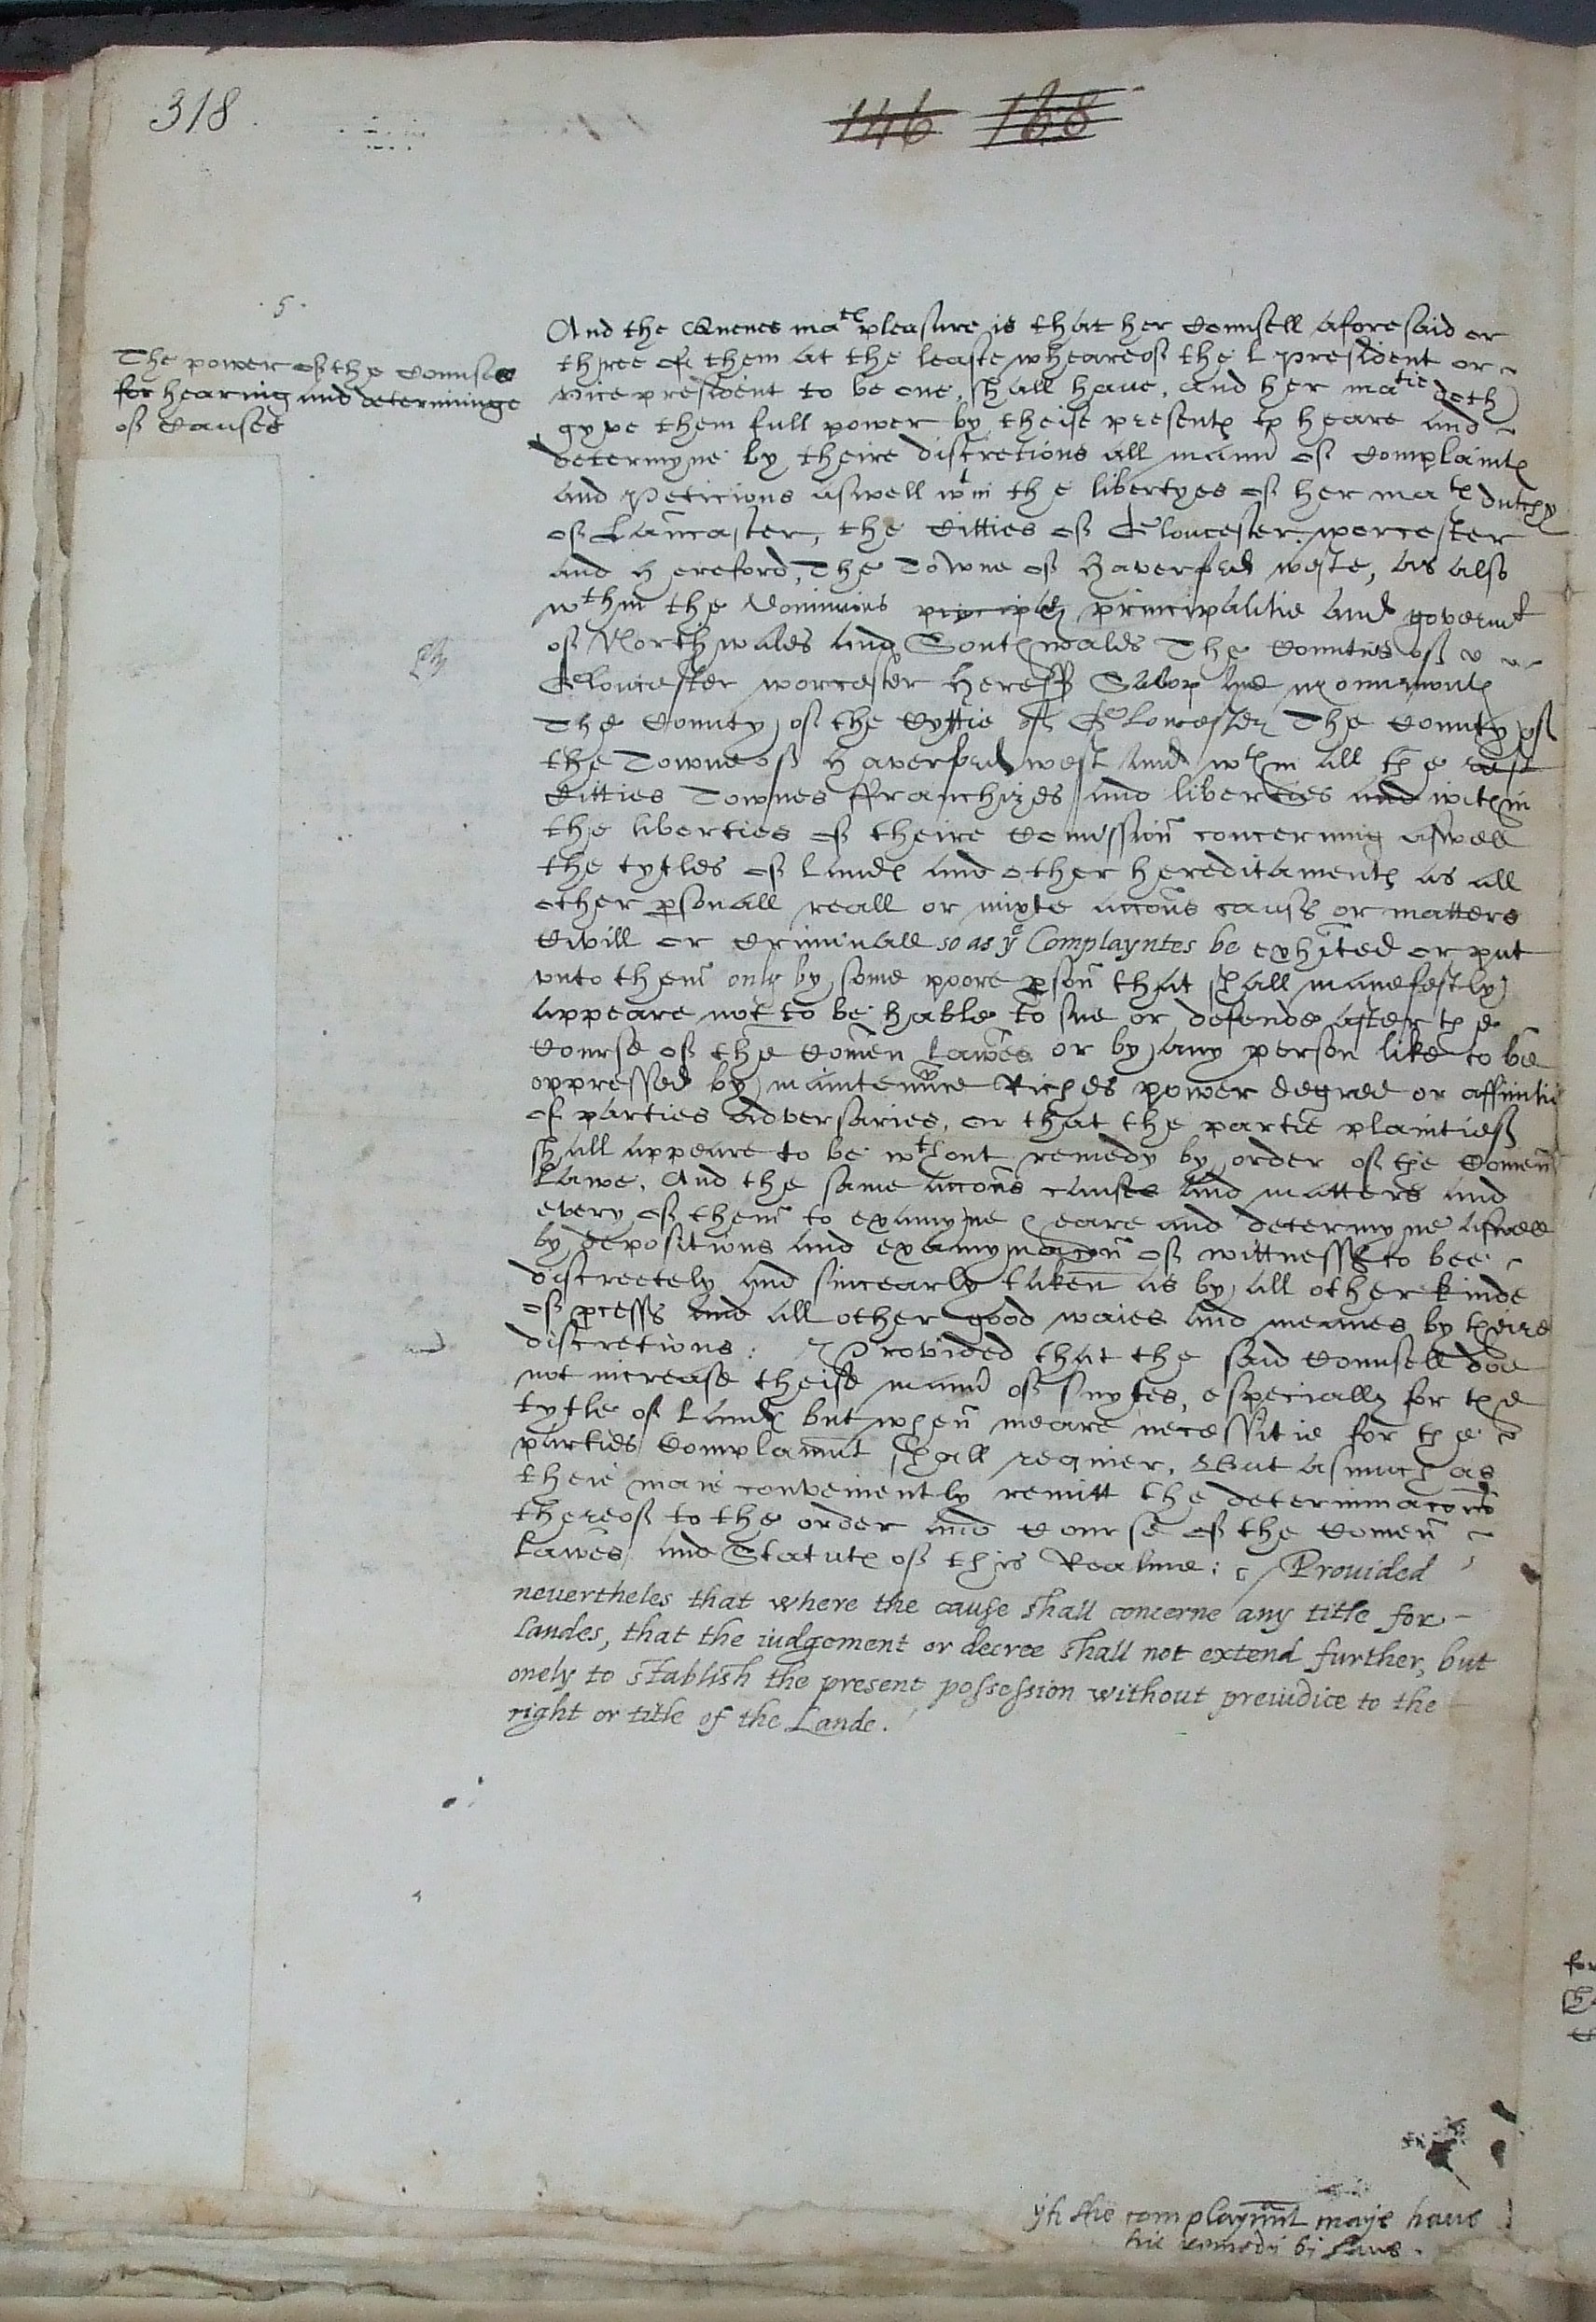 318
146 168
5
The power of the Counsell
for hearing and determininge
of Causes
And the Quenes mates pleasure is that her Counsell aforesaid or
three of them at the leaste wheareof the L president or
vice president to be one, shall have, and her matie doth
gyve them full power by theise presentes to heare and
determyne by theire discretions all mann of Complaintes
and Peticions aswell wtin the libertyes of her mates dutchy
of Lancaster, the Citties of Gloucester, worcester
and Hereford, The Towne of Haverford weste, as also
wthin the Dominions principalitie and governmt
of North wales and South wales The Counties of
Gloucester worcester Hereff Salop and Monmouth
The County of the Cyttie of Gloucester The County of
the Towne of Haverford west And wthin all the rest
Citties Townes ffranchizes and liberties and within
the liberties of theire Comission concerning aswell
the tytles of landes and other hereditamentes as all
other psonall reall or mixte accons causes or matters
Civill or Criminall so as ye Complayntes be exhited or put
unto them only by some poore pson that shall manefestly
appeare not to be hable to sue or defende after the
Course of the Comen Lawes or by any person like to be
oppressed by maintennce Riches power degree or affinitie
of parties adversaries, or that the partie plaintief
shall appeare to be wthout remedy by order of the Comen
Lawe, And the same accons causes and matters and
every of them to examyne heare and determyne aswell
by depositions and examynacon of wittnesses to bee
discreetely and sincearly taken as by all other kinde
of pcesse and all other good waies and meanes by theire
discretions: Provided that the said Counsell doe
not increase theise mann of suytes, especially for the
tytle of landes but when meare necessitie for the
parties Complainnt shall requier, But asmuch as
theie maie conveniently remitt the determinacons
thereof to the order and Course of the Comen
Lawes and Statutes of this Realme: Prouided
neuertheles that where the cause shall concerne any title for
landes, that the iudgement or decree shall not extend further, but
onely to stablish the present possession without preiudice to the
right or title of the Lande.
yf the complaynnt maye haue
his remedy by lawe.